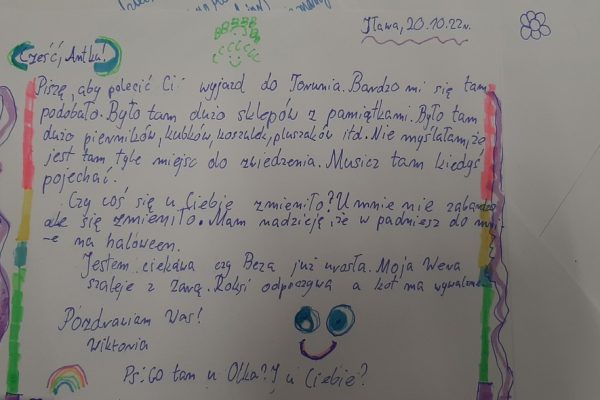 Iława, 20.10.22r.
Cześć, Antku!
Piszę, aby polecić Ci wyjazd do Torunia. Bardzo mi się tam
podobało. Było tam dużo sklepów z pamiątkami. Było tam
dużo pierników, kubków, koszulek, pluszaków itd. Nie myślałam, że
jest tam tyle miejsc do zwiedzenia. Musicz tam kiedyś
pojechać.
Czy coś się u Ciebie zmieniło? U mnie nie za bardzo
ale się zmieniło. Mam nadzieję, że w padniesz do mn
-e na haloween.
Jestem ciekawa czy Beza już urosła. Moja Wena
szaleje z Zarą. Roksi odpoczywa a kot ma wywalone
Pozdrawiam Was!
Wiktoria
Ps: Co tam u Olka? I u Ciebie?